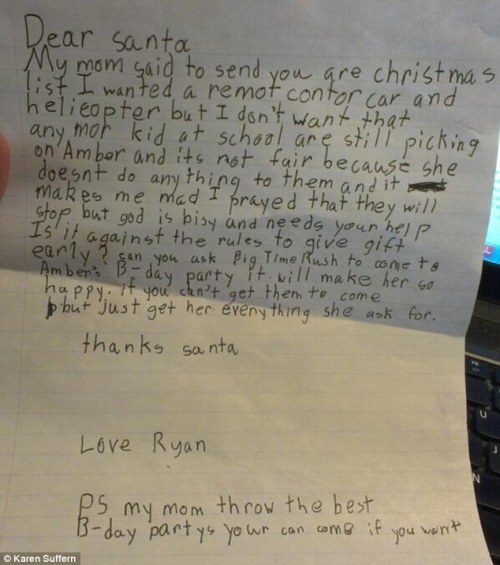 Dear santa
My mom said to send you are christmas
list I wanted a remot contor car and
helicopter but I don't want that
any mor kid at school are still picking
on Amber and its not fair because she
doesnt do any thing to them and it
makes me mad I prayed that they will
stop but god is bisy and needs your help
Is it against the rules to give gift
early? can you ask Big Time Rush to come to
Amber's B-day party it will make her so
happy. if you can't get them to come
but just get her everything she ask for.
thanks santa
Love Ryan
PS my mom throw the best
B-day partys your can come if you want
© Karen Suffern